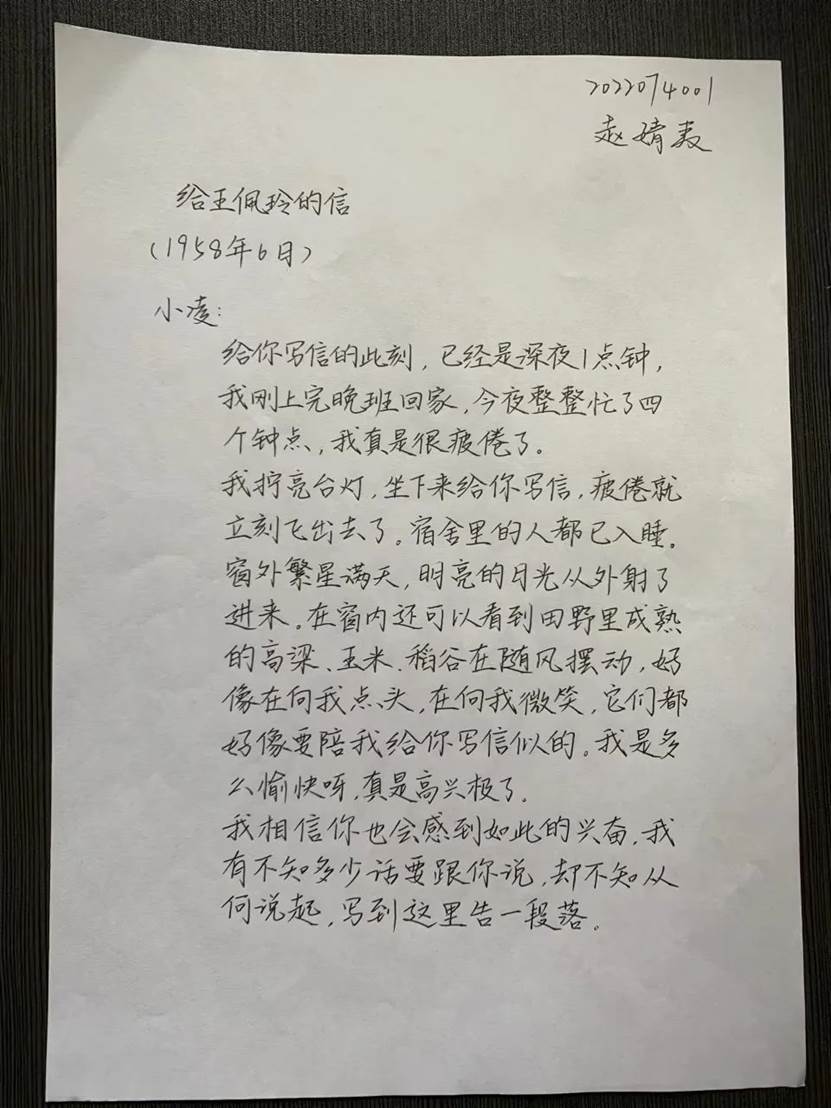 2022074001
赵婧
给王佩玲的信
(1958年6日)
小凌:
给你写信的此刻,已经是深夜1点钟,
我刚上完晚班回家,今夜整整忙了四
个钟点,我真是很疲倦了。
我拧亮台灯,坐下来给你写信,疲倦就
立刻飞出去了。宿舍里的人都已入睡。
窗外繁星满天,明亮的月光从外射了
进来。在窗内还可以看到田野里成熟
的高梁、玉米、稻谷在随风摆动,好
像在向我点头,在向我微笑,它们都
好像要陪我给你写信似的。我是多
么愉快呀,真是高兴极了。
我相信你也会感到如此的兴奋,我
有不知多少话要跟你说,却不知从
何说起,写到这里告一段落。